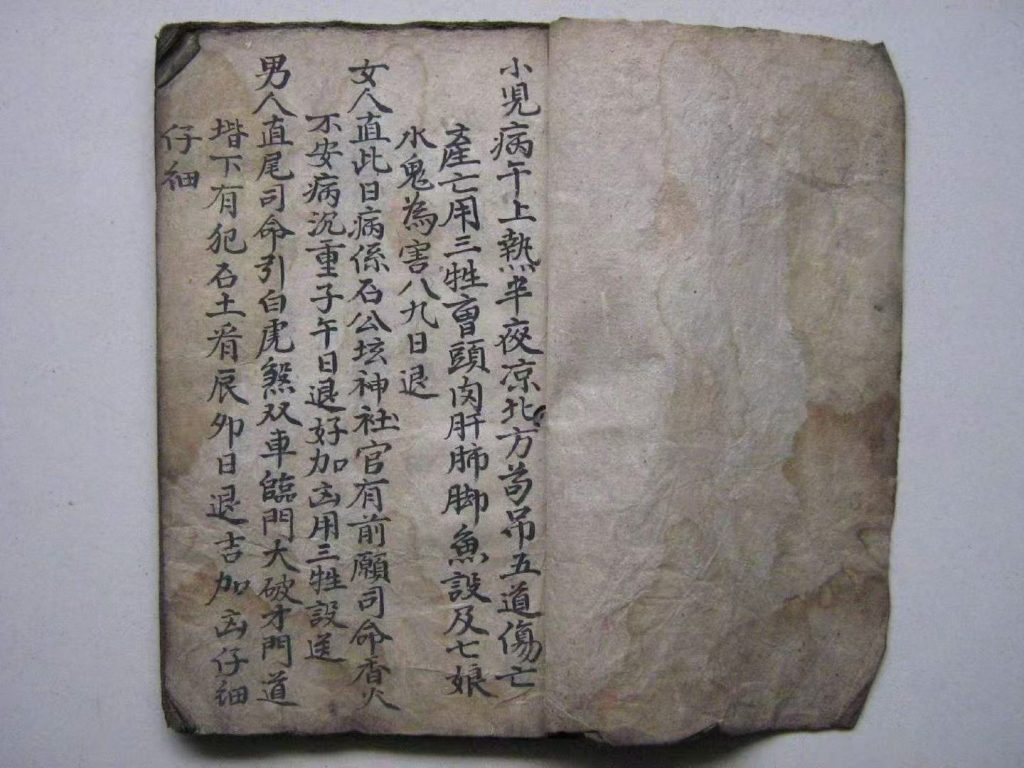 小児病午上熱半夜凉北方苟吊五道傷亡
產亡用三牲會頭肉肝肺脚魚設及七娘
水鬼為害八九日退
女人直此日病係石公坛神社官有前願司命香火
不安病沉重子午日退好加凶用三牲設送
男人直尾司命引白虎煞双車臨門大破才門道
堦下有犯石土看辰夘日退吉加凶仔細
仔細